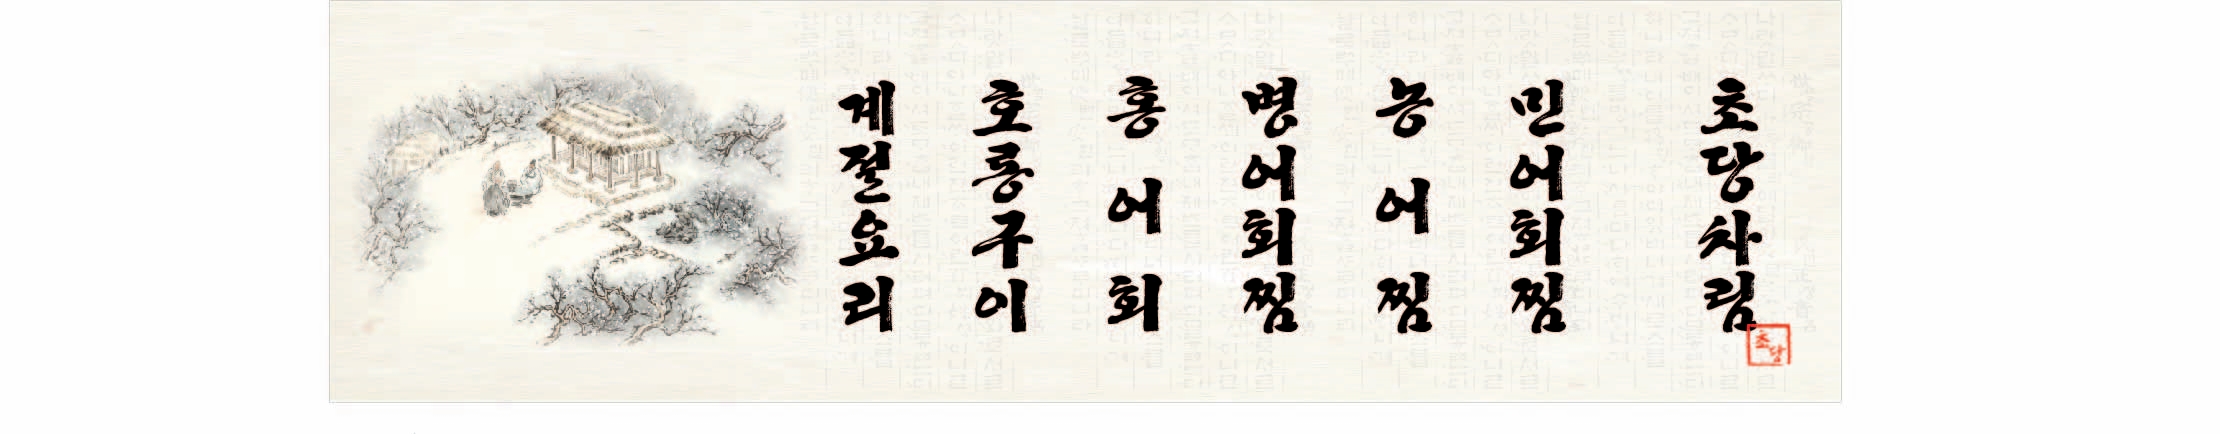 초당차림
초당
민어회찜
농어찜
병어회찜
홍어회
호롱구이
계절요리